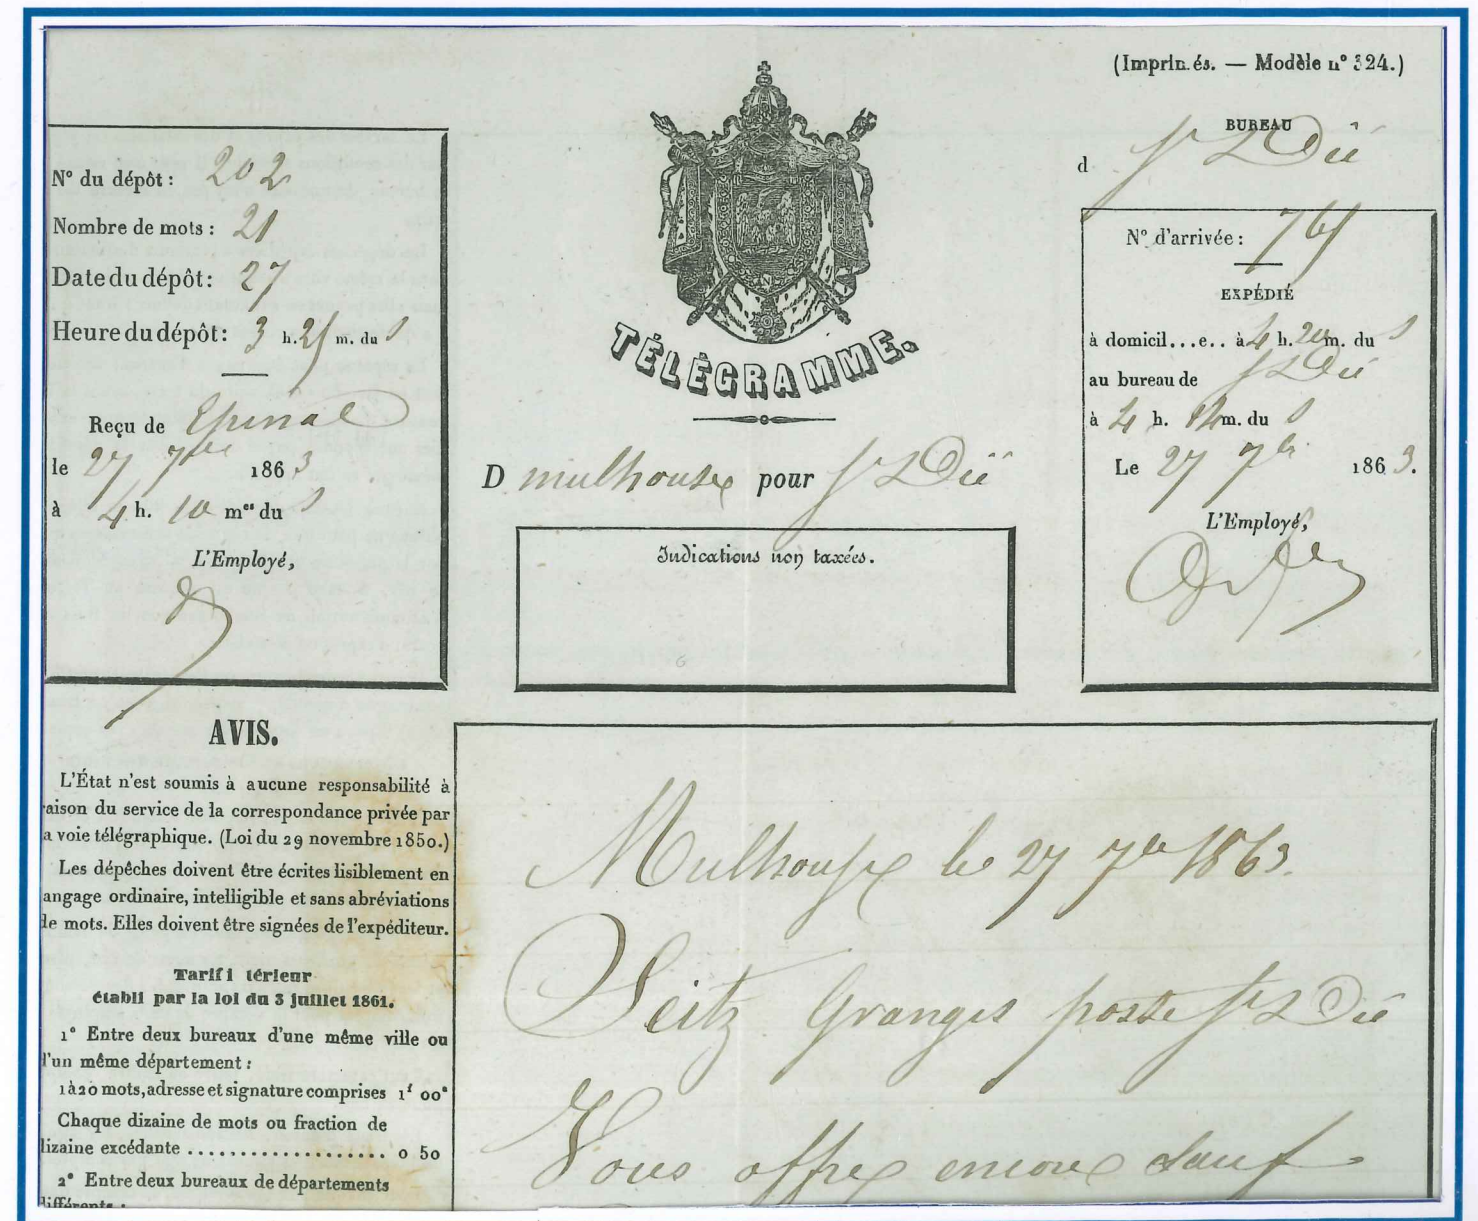 (Imprimés. — Modèle n° 324.)
N° du dépôt : 202
Nombre de mots : 21
Date du dépôt : 27
Heure du dépôt : 3 h. 25 m. du S
Reçu de Epinal
le 27 7bre 1863
à 4 h. 10 mes du S
L'Employé,
TÉLÉGRAMME.
D mulhouse pour St Dié
Indications non taxées.
6
BUREAU
d St Dié
N° d'arrivée :
EXPÉDIÉ
à domicil...e.. à 4 h. 20 m. du S
au bureau de St Dié
à 4 h. 12 m. du S
Le 27 7bre 1863.
L'Employé,
AVIS.
L'État n'est soumis à aucune responsabilité à
raison du service de la correspondance privée par
a voie télégraphique. (Loi du 29 novembre 1850.)
Les dépêches doivent être écrites lisiblement en
angage ordinaire, intelligible et sans abréviations
de mots. Elles doivent être signées de l'expéditeur.
Tarif i térieur
établi par la loi du 3 juillet 1861.
1° Entre deux bureaux d'une même ville ou
d'un même département :
1 à 20 mots, adresse et signature comprises 1f 00c
Chaque dizaine de mots ou fraction de
dizaine excédante ................... 0 50
2° Entre deux bureaux de départements
différents :
Mulhouse le 27 7bre 1863.
Seitz Granges poste St Dié
Vous offre encore sauf